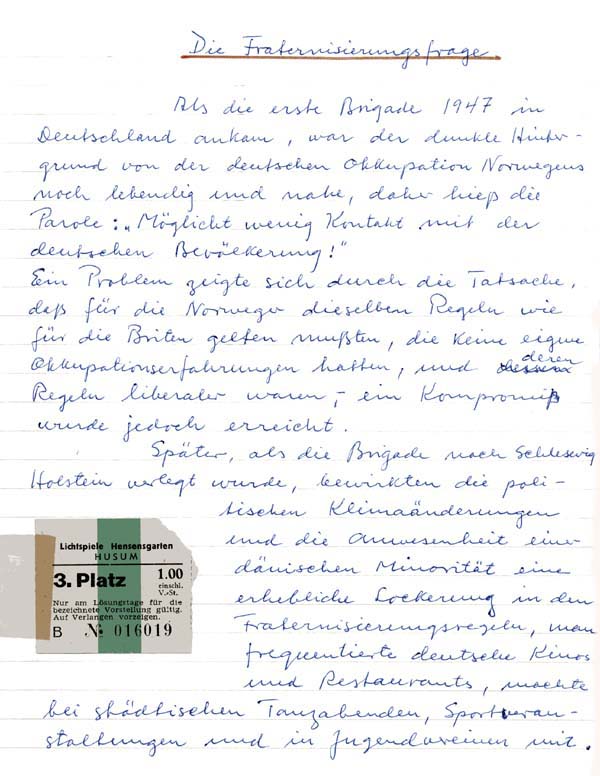 Die Fraternisierungsfrage.
Als die erste Brigade 1947 in
Deutschland ankam, war der dunkle Hinter-
grund von der deutschen Okkupation Norwegens
noch lebendig und nahe, daher hieß die
Parole: „Möglicht wenig Kontakt mit der
deutschen Bevölkerung!"
Ein Problem zeigte sich durch die Tatsache,
daß für die Norweger dieselben Regeln wie
für die Briten gelten mußten, die keine eigene
Okkupationserfahrungen hatten, und deren
Regeln liberaler waren, – ein Kompromiß
wurde jedoch erreicht.
Später, als die Brigade nach Schleswig
Holstein verlegt wurde, bewirkten die poli-
tischen Klimaänderungen
und die Anwesenheit einer
dänischen Minorität eine
erhebliche Lockerung in den
Fraternisierungsregeln, man
frequentierte deutsche Kinos
und Restaurants, machte
bei städtischen Tanzabenden, Sportveran-
staltungen und in Jugendvereinen mit.
Lichtspiele Hensensgarten
HUSUM
3. Platz 1.00
einschl.
V.-St.
Nur am Lösungstage für die
bezeichnete Vorstellung gültig.
Auf Verlangen vorzeigen.
B № 016019